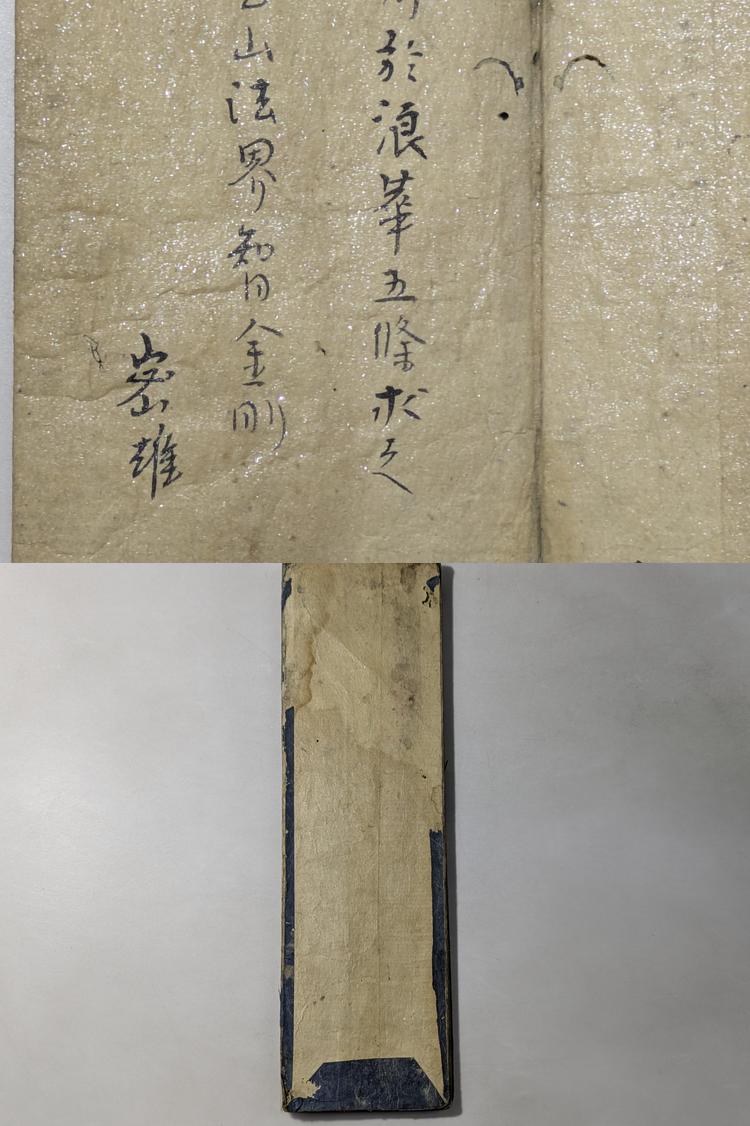 於浪華五條求之
山法界智金剛
密雄